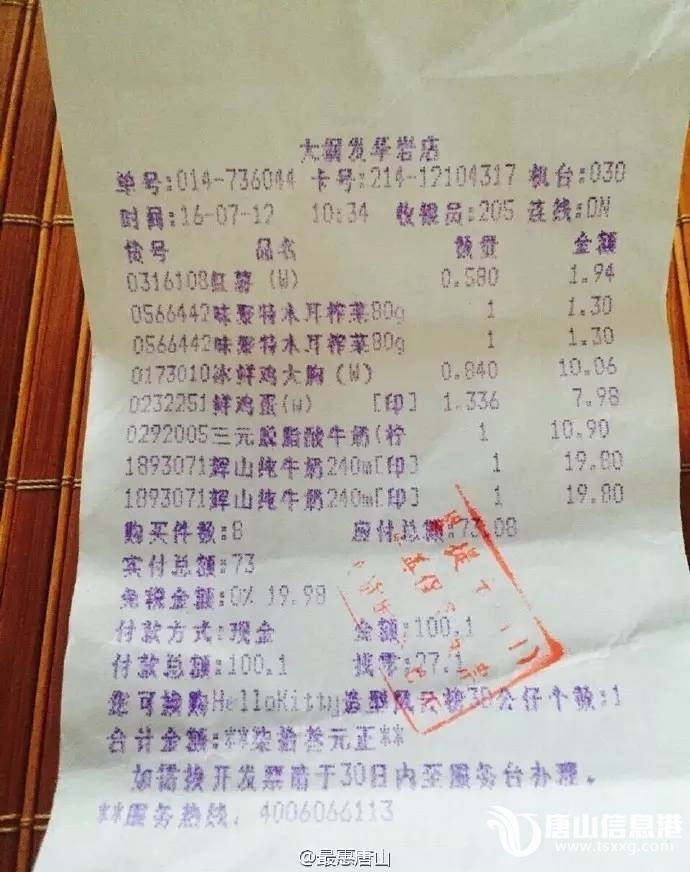 大润发华岩店
单号:014-736044 卡号:214-12104317 机台:030
时间:16-07-12 10:34 收银员:205 连线:ON
货号 品名 数量 金额
0316108红薯(W) 0.580 1.94
0566442味聚特木耳榨菜80g 1 1.30
0566442味聚特木耳榨菜80g 1 1.30
0173010冰鲜鸡大胸(W) 0.840 10.06
0232251鲜鸡蛋(W) [印] 1.336 7.98
0292005三元脱脂酸牛奶(柠 1 10.90
1893071辉山纯牛奶240m[印] 1 19.80
1893071辉山纯牛奶240m[印] 1 19.80
购买件数:8 应付总额:73.08
实付总额:73
免税金额:0% 19.98
付款方式:现金 金额:100.1
付款总额:100.1 找零:27.1
您可换购HelloKitty造型风云榜3D公仔个数:1
合计金额:**柒拾叁元正**
如需换开发票请于30日内至服务台办理。
**服务热线: 4006066113
@最惠唐山
唐山信息港
www.tsxxg.com